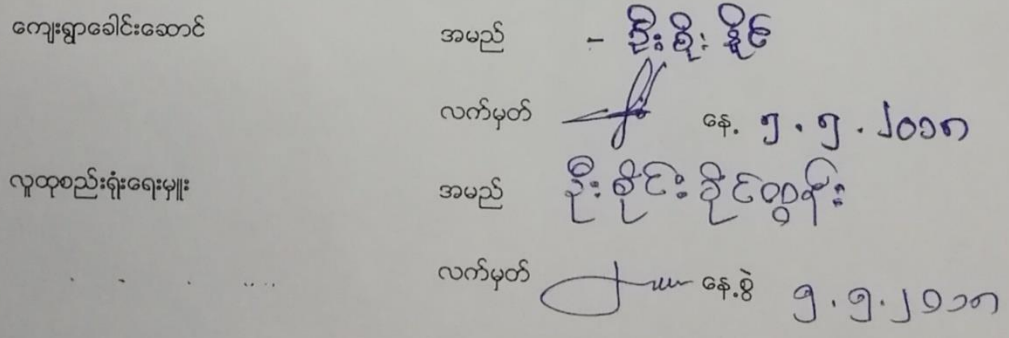 ကျေးရွာခေါင်းဆောင် အမည် - ဦးစိုးနိုင်
လက်မှတ် နေ့ ၅.၅.၂၀၁၈
လူထုစည်းရုံးရေးမှူး အမည် ဦးစိုင်းခိုင်ထွန်း
လက်မှတ် နေ့စွဲ ၅.၅.၂၀၁၈